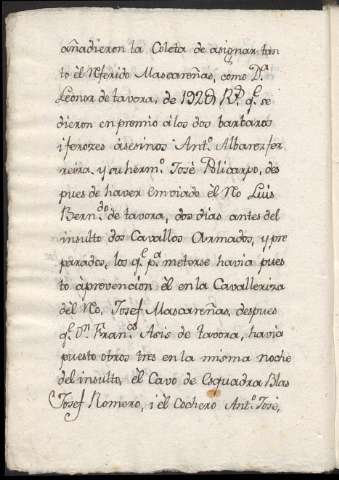 añadieron la Coleta de asignar tan
to èl Referido Mascareñas, como D.ª
Leonor de tavora, de 192 R.ˢ q.ᵉ se
dieron en premio à los dos barbaros
i feroces Asesinos Ant.º Albarez fer
reira, y su herm.º Josè Policarpo, des
pues de haver Emviado èl Rº Luis
Bern.ᵈᵒ de tavora, dos dias antes del
insulto dos Cavallos Armados, y pre
parados, los q.ᵉ p.ª meterse havia pues
to àprevencion èl en la Cavalleriza
del Rº, Josef Mascareñas, despues
q.ᵉ Dⁿ Fran.ᶜᵒ Asis de tavora, havia
puesto otros tres en la misma noche
del insulto, èl Cavo de Esquadra Blas
Josef Romero, i èl Cochero Ant.º Josè,